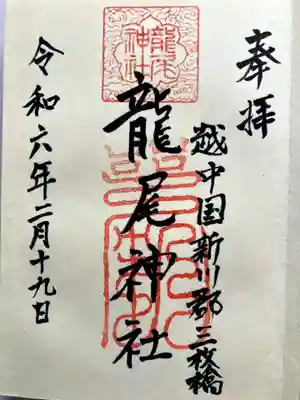 奉拝
越中国新川郡三枚橋
龍尾神社
龍尾神社
令和六年二月十九日